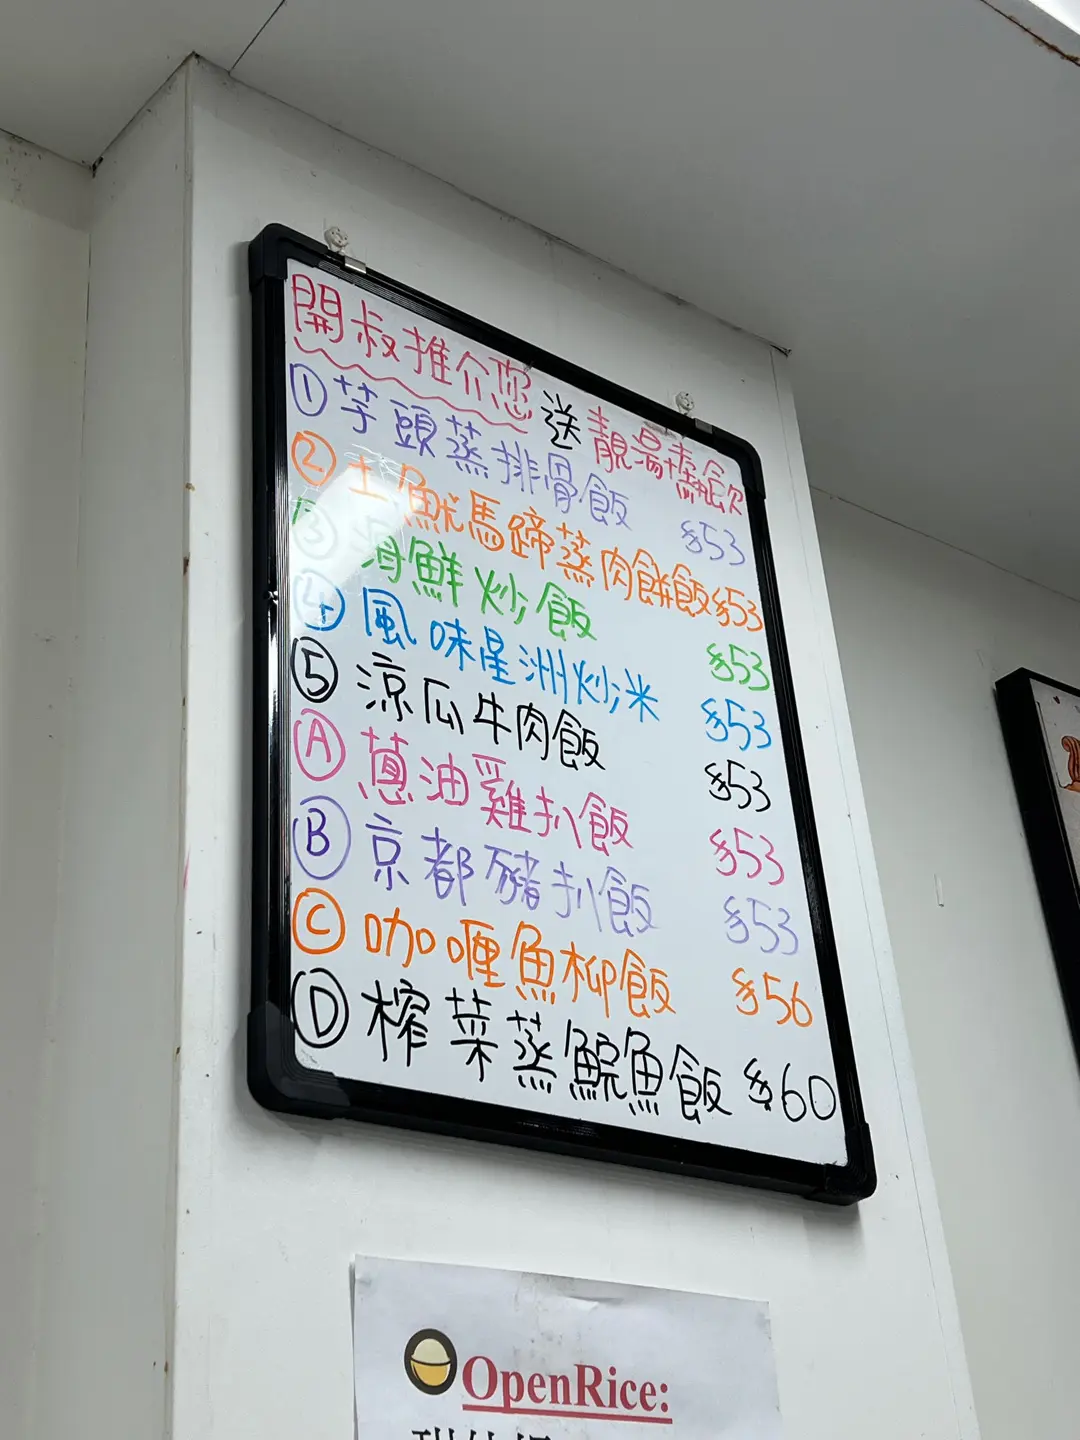 開叔推介您 送靚湯或熱飲
① 芋頭蒸排骨飯 $53
② 土魷馬蹄蒸肉餅飯 $53
③ 海鮮炒飯 $53
④ 風味星洲炒米 $53
⑤ 涼瓜牛肉飯 $53
Ⓐ 蔥油雞扒飯 $53
Ⓑ 京都豬扒飯 $53
Ⓒ 咖喱魚柳飯 $56
Ⓓ 榨菜蒸鯇魚飯 $60
OpenRice: